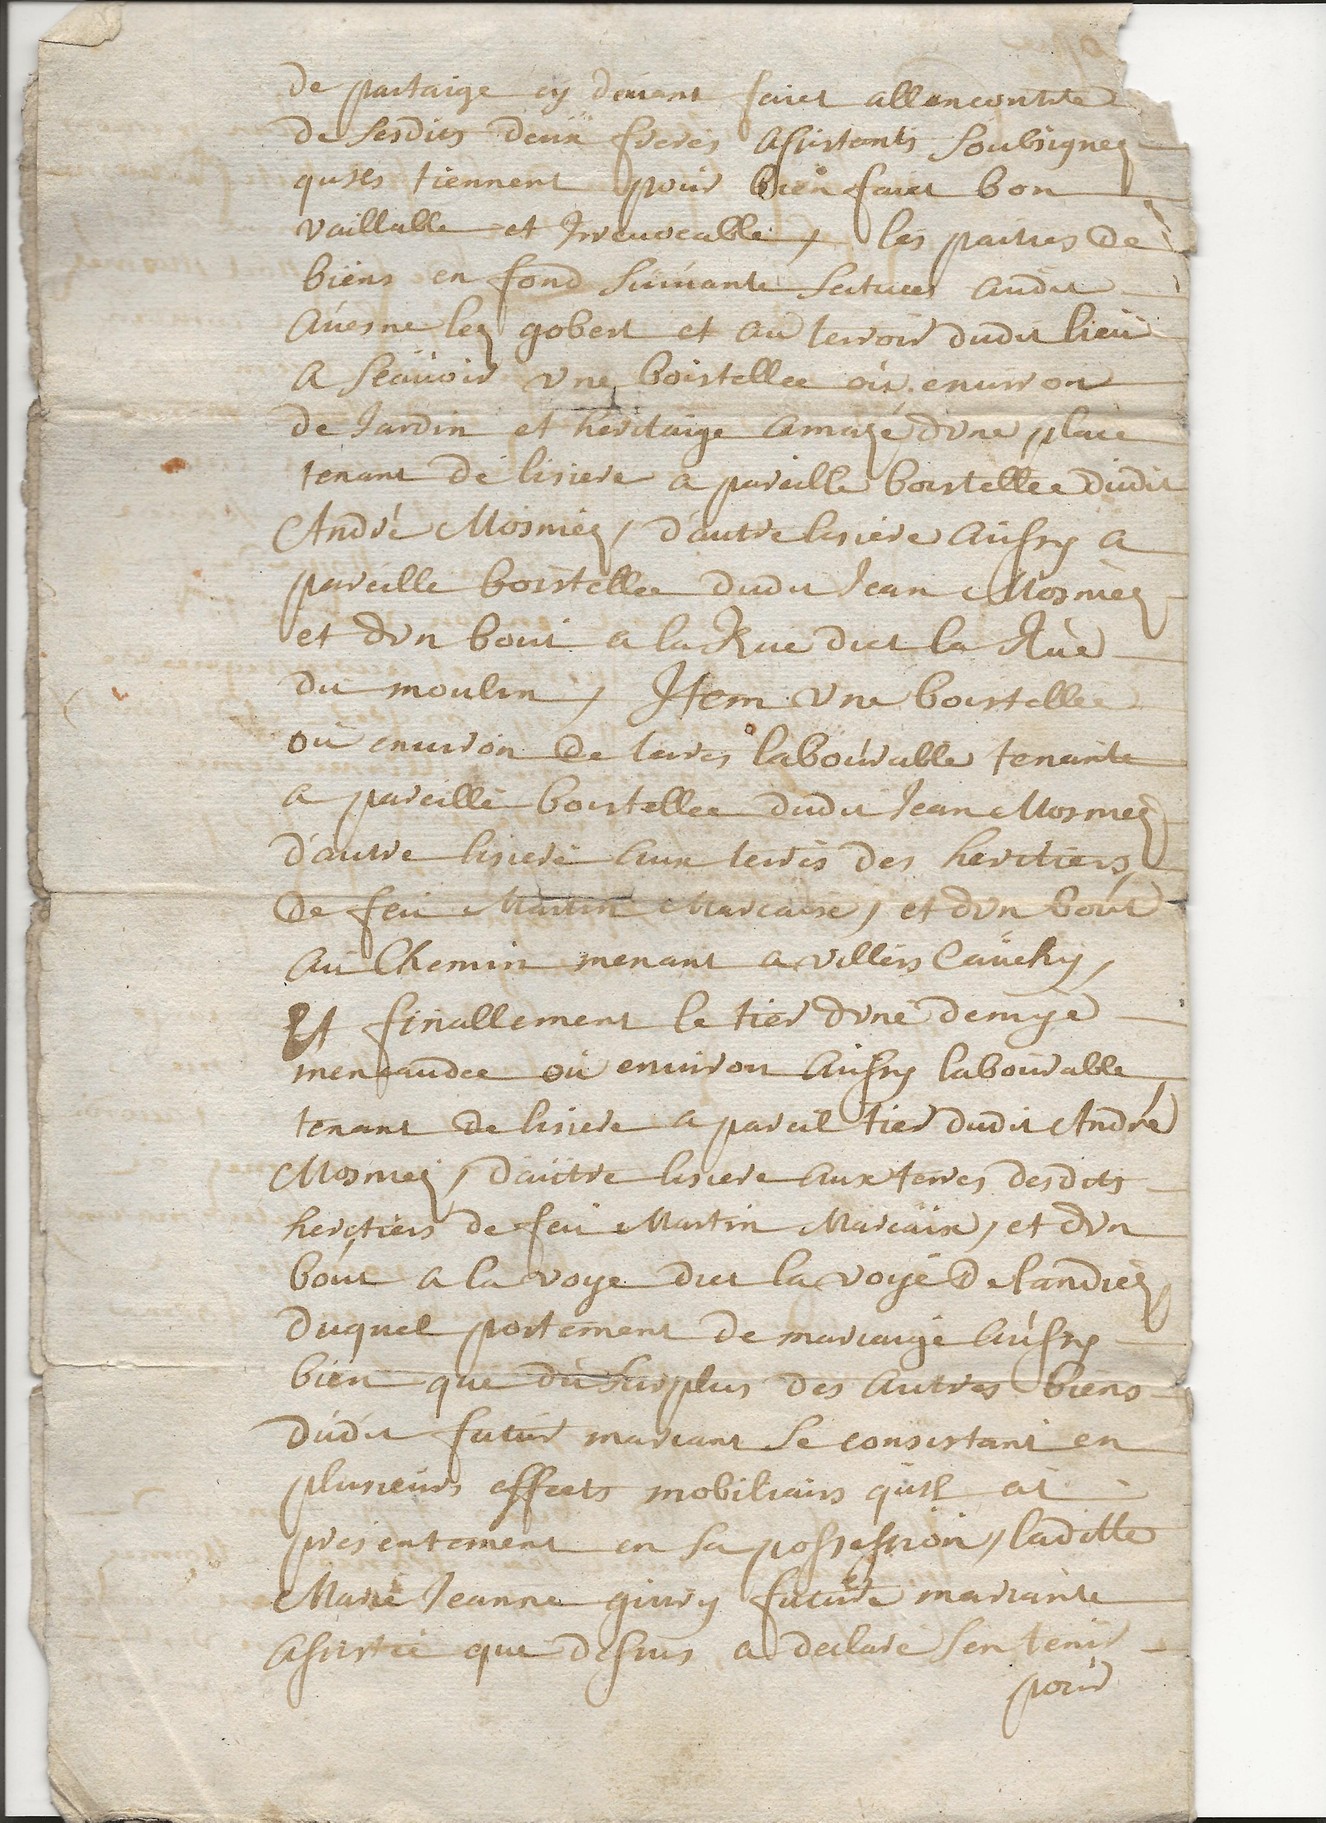 de partaige cy devant faict allencontre
de sesdits deux freres assistants soubsignez
qu'ils tiennent pour bien faict bon
vaillable et Irrevocable, les parties de
biens en fond suivante scituees audit
Avesne lez gobert et au terroir dudit lieu
a scavoir une boistellee ou environ
de Jardin et heritaige amazé d'une place
tenant de lisiere a pareille boistellee dudit
André Mosmez, d'autre lisiere aussy a
pareille boistellee dudit Jean Mosmez
et d'un bout a la Rue dict la Rue
du moulin, Item une boistellee
ou environ de terres labourable tenante
a pareille boistellee dudit Jean Mosmez
d'autre lisiere aux terres des heritiers
de feu Martin Marcaixe, et d'un bout
au Chemin menant a villers Cauchy,
Et finallement le tier d'une demye
mencaudee ou environ aussy labourable
tenant de lisiere a pareil tier dudit André
Mosmez, d'autre lisiere aux terres desdits
heritiers de feu Martin Marcaix, et d'un
bout a la voye dict la voye de landiez
duquel portement de mariaige aussy
bien que du surplus des autres biens
dudit futur mariant se consistant en
plusieurs effects mobiliairs qu'il at
presentement en sa possession, laditte
Marie Jeanne givry future mariante
assistée que dessus a declaré s'en tenir
pour